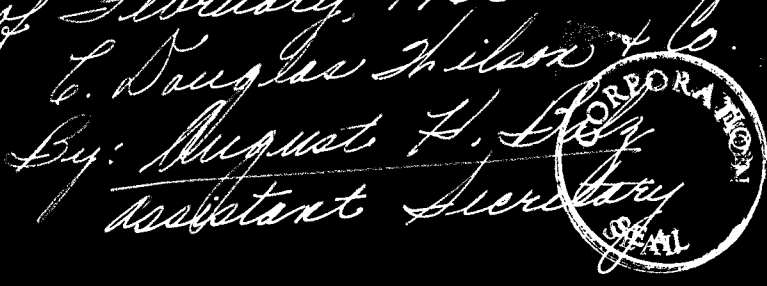 of February, 19
C. Douglas Wilson & Co.
By: August H.
Assistant Secretary
CORPORATION
SEAL